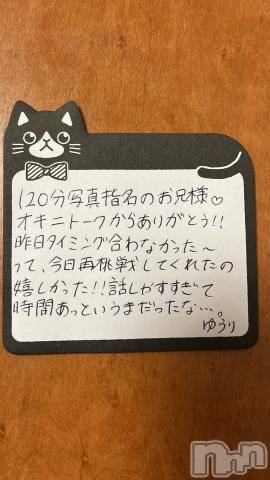 120分写真指名のお兄様♡
オキニトークからありがとう!!
昨日タイミング合わなかった〜
って、今日再挑戦してくれたの
嬉しかった!!話しやすすぎて
時間あっというまだったな…。
ゆうり